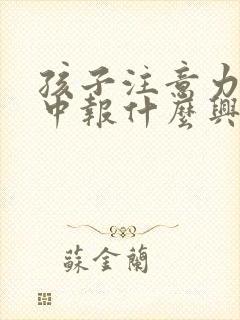 孩子注意力
中報什麼興
蘇金蘭